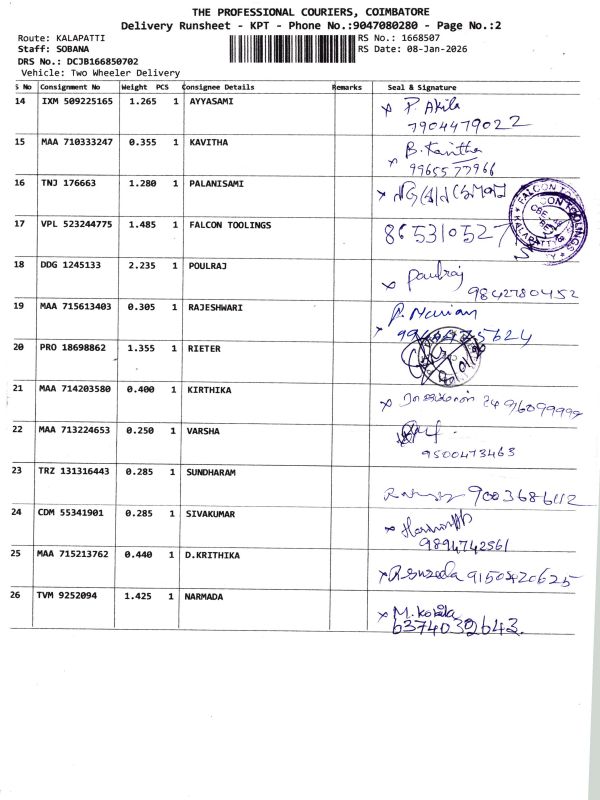 THE PROFESSIONAL COURIERS, COIMBATORE
Delivery Runsheet - KPT - Phone No.:9047080280 - Page No.:2
Route: KALAPATTI RS No.: 1668507
Staff: SOBANA RS Date: 08-Jan-2026
DRS No.: DCJB166850702
Vehicle: Two Wheeler Delivery
S No Consignment No Weight PCS Consignee Details Remarks Seal & Signature
14 IXM 509225165 1.265 1 AYYASAMI P. Akila
7904479022
15 MAA 710333247 0.355 1 KAVITHA B. Kavitha
9965577966
16 TNJ 176663 1.280 1 PALANISAMI
17 VPL 523244775 1.485 1 FALCON TOOLINGS 865310527
FALCON TOOLINGS
KALAPATTY
18 DDG 1245133 2.235 1 POULRAJ poulraj
9842780452
19 MAA 715613403 0.305 1 RAJESHWARI
20 PRO 18698862 1.355 1 RIETER
21 MAA 714203580 0.400 1 KIRTHIKA
22 MAA 713224653 0.250 1 VARSHA
9500473463
23 TRZ 131316443 0.285 1 SUNDHARAM 9003686112
24 CDM 55341901 0.285 1 SIVAKUMAR
9894742561
25 MAA 715213762 0.440 1 D.KRITHIKA 9150420625
26 TVM 9252094 1.425 1 NARMADA M. Kokila
6374032643.